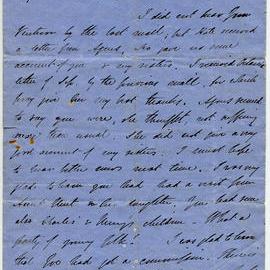 I did not hear from
by the last mail, but Kate received
a letter from Agnes, who gave me some
account of you & my sisters. I received
letter of by the previous mail, for which
pray give him my best thanks. Agnes seemed
to say you were, she thought, not suffering
more than usual. She did not give a very
good account of my sisters. I must hope
to hear better news next time. I was very
glad to learn you had had a visit from
Aunt & her daughter. You had seen
also Charles & Henry's children - What a
party of young folks! I was glad to learn
that had got a commission. There is